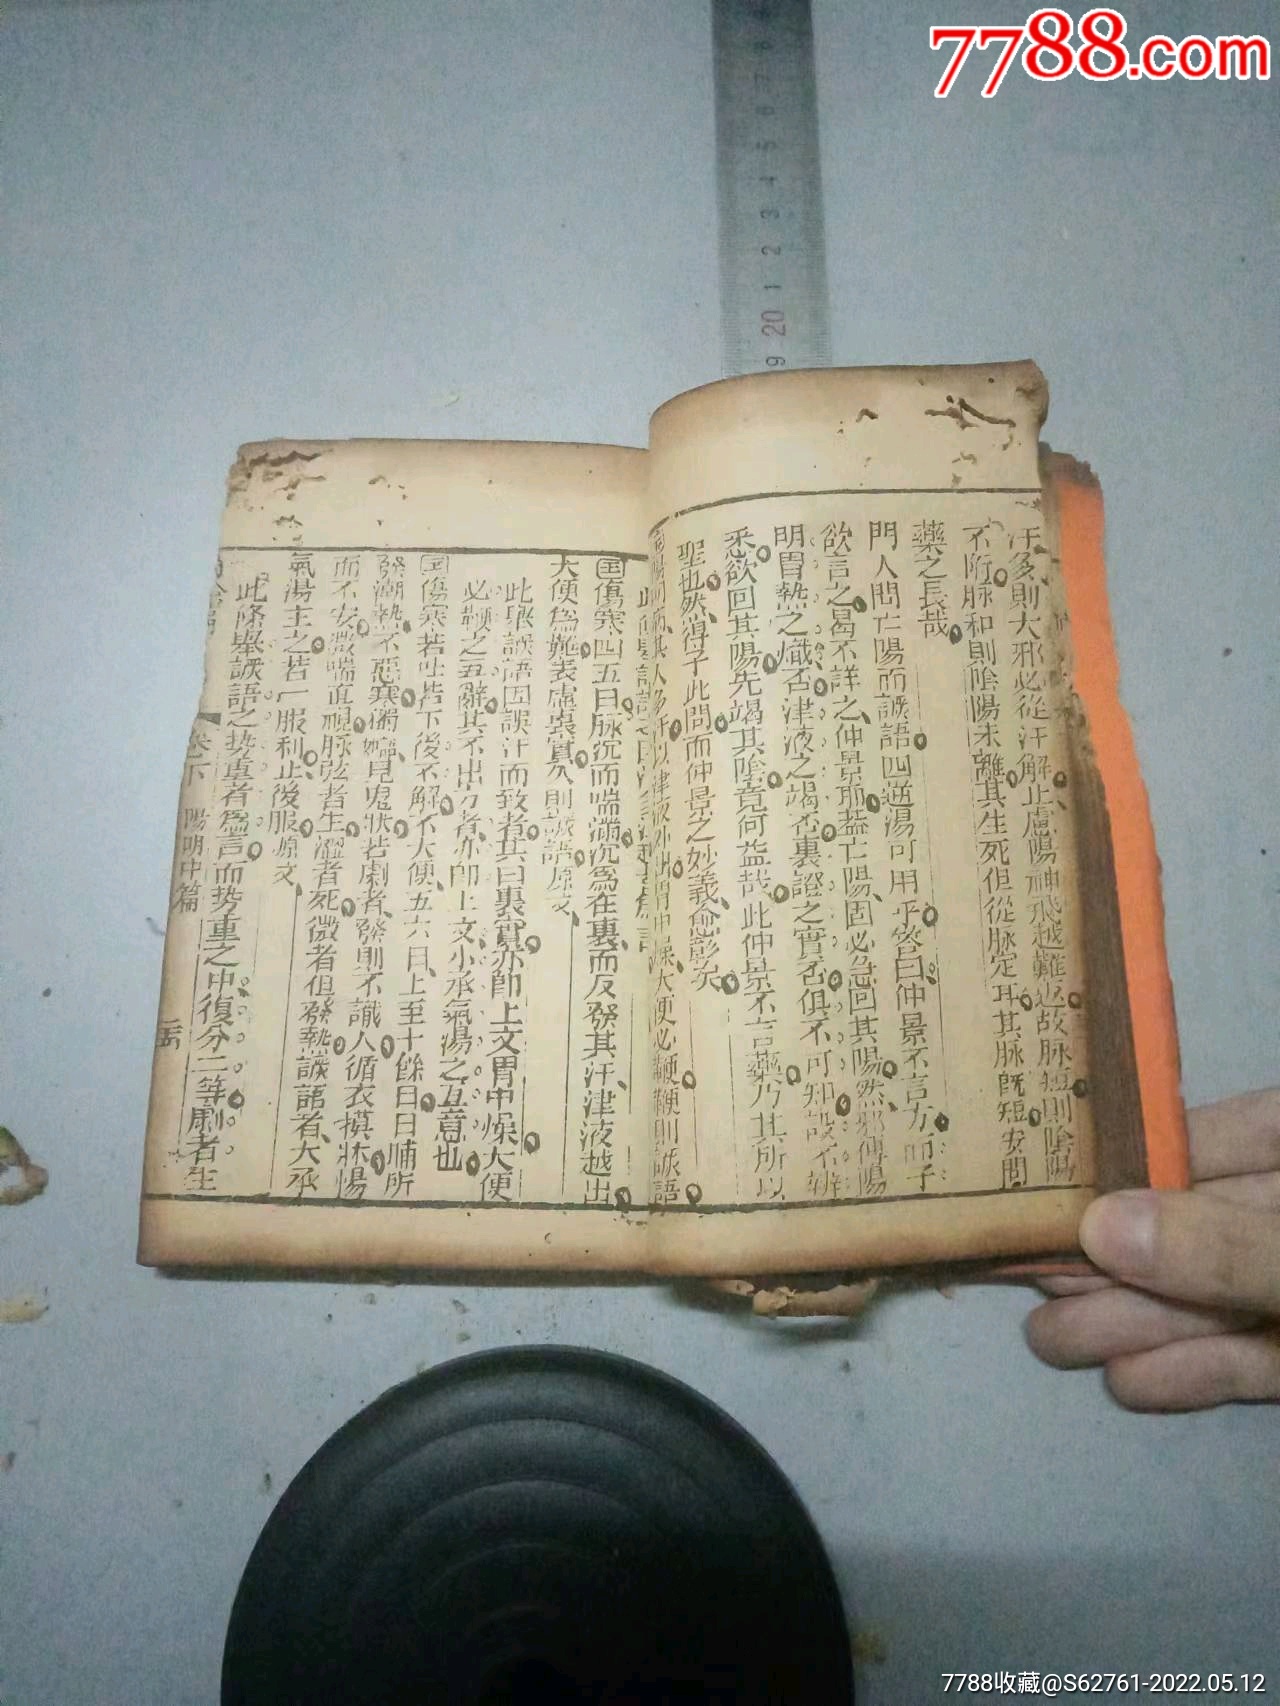 7788.com
汗多則大邪必從汗解止慮陽神飛越難返故脉短則陰陽
不附脉和則陰陽未離其生死但從脉定耳其脉既短安問
藥之長哉
門人問亡陽而譫語四逆湯可用乎答曰仲景不言方而子
欲言之曷不詳之仲景耶蓋亡陽固必急回其陽然邪傳陽
明胃熱之熾否津液之竭否裏證之實否俱不可知設不辨
悉欲回其陽先竭其陰竟何益哉此仲景不言藥乃其所以
聖也然得子此問而仲景之妙義愈彰矣
陽明病其人多汗以津液外出胃中燥大便必鞕鞕則譫語
傷寒四五日脉沉而喘滿沉為在裏而反發其汗津液越出
大便為難表虛裏實久則譫語原文
此舉譫語因誤汗而致者其曰裏實亦即上文胃中燥大便
必鞕之互辭其不出方者亦即上文小承氣湯之互意也
傷寒若吐若下後不解不大便五六日上至十餘日日晡所
發潮熱不惡寒獨語如見鬼狀若劇者發則不識人循衣摸牀惕
而不安微喘直視脉弦者生澀者死微者但發熱譫語者大承
氣湯主之若一服利止後服原文
此條舉譫語之势重者爲言而势重之中復分二等劇者生
卷下 陽明中篇
20 1 2 3 4 5 6 7
7788收藏@S62761-2022.05.12